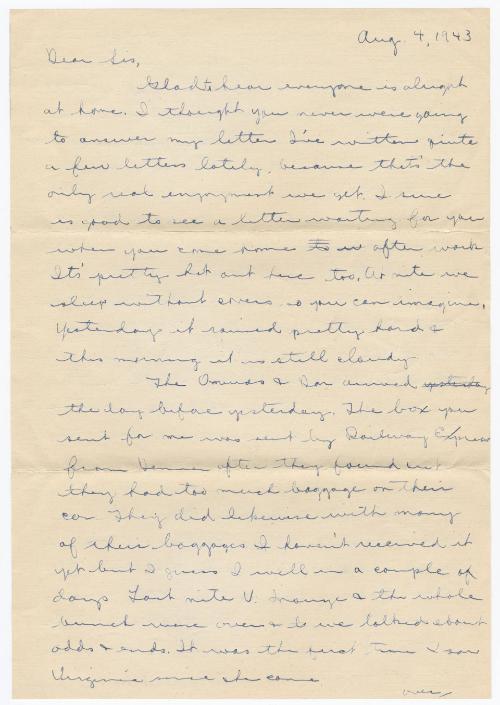 Aug. 4, 1943
Dear Sis,
Glad to hear everyone is alright
at home. I thought you never were going
to answer my letter I've written quite
a few letters lately, because that's the
only real enjoyment we get. I sure
is good to see a letter waiting for you
when you come home after work
It's pretty hot out here too. At nite we
sleep without covers so you can imagine.
Yesterday it rained pretty hard &
this morning it is still cloudy
The & arrived yesterday
the day before yesterday. The box you
sent for me was sent by Railway Express
from Denver after they found out
they had too much baggage on their
car. They did likewise with many
of their baggages I haven't received it
yet but I guess I will in a couple of
days Last nite V. & the whole
bunch were over & so we talked about
odds & ends. It was the first time I saw
Virginia since she came
over